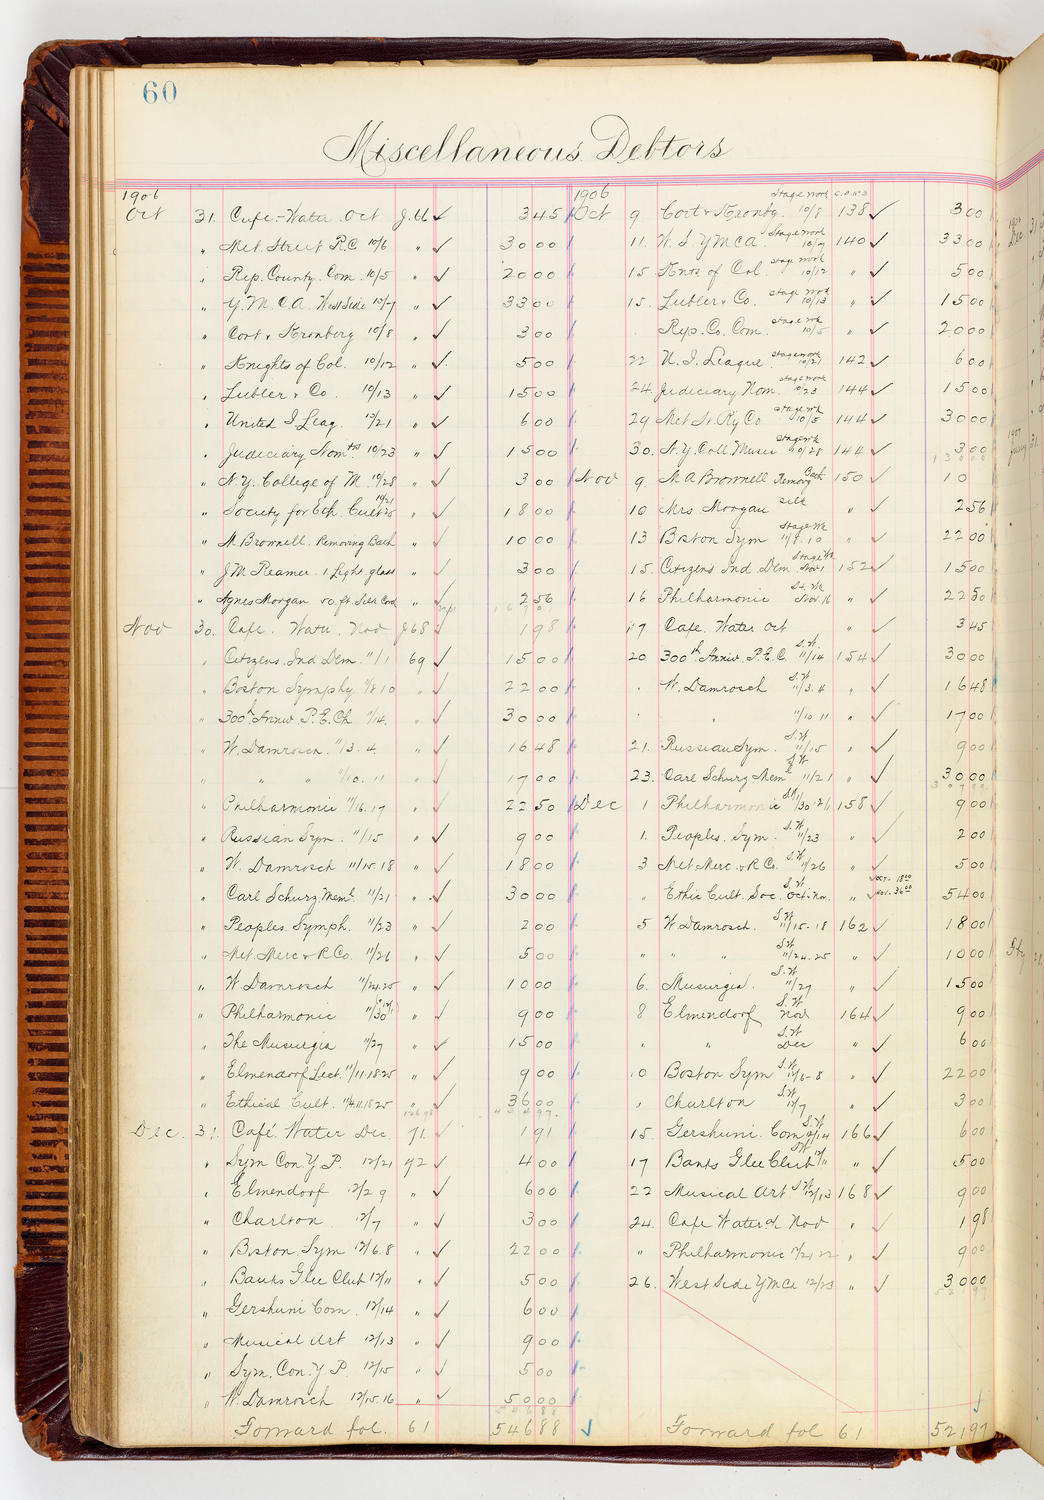 60
Miscellaneous Debtors
1906
Oct 31. Cafe - Water Oct J.66 ✓ 3 45
" Met. Street R.C. 10/6 " ✓ 30 00
" Rep. County Com. 10/5 " ✓ 20 00
" Y.M.C.A. West Side 10/7 " ✓ 33 00
" Cort & Kronberg 10/8 " ✓ 3 00
" Knights of Col. 10/12 " ✓ 5 00
" Liebler & Co. 10/13 " ✓ 15 00
" United I Leag. 10/21 " ✓ 6 00
" Judiciary Nomts 10/23 " ✓ 15 00
" N.Y. College of M. 10/28 " ✓ 3 00
" Society for Eth. Cult 10/21 28 " ✓ 18 00
" M. Brownell. Removing Bath " ✓ 10 00
" J.M. Reamer. 1 Light glass " ✓ 3 00
" Agnes Morgan 50 ft Silk Cord " ✓ 2 56
Nov 30. Cafe. Water. Nov J68 ✓ 1 98
" Citizens. Ind Dem. 11/1 69 ✓ 15 00
" Boston Symphy 11/8 10 " ✓ 22 00
" 300th Anniv. P.E. Ch 11/14. " ✓ 30 00
" W. Damrosch. 11/3. 4 " ✓ 16 48
" " " 11/10. 11 " ✓ 17 00
" Philharmonic 11/16. 17 " ✓ 22 50
" Russian Sym. 11/15 " ✓ 9 00
" W. Damrosch 11/15. 18 " ✓ 18 00
" Carl Schurz Meml. 11/21 " ✓ 30 00
" Peoples. Symph. 11/23 " ✓ 2 00
" Met. Merc & R Co. 11/26 " ✓ 5 00
" W. Damrosch 11/24.25 " ✓ 10 00
" Philharmonic 11/30 12/1 " ✓ 9 00
" The Musurgia 11/27 " ✓ 15 00
" Elmendorf Lect. 11/11.18.25 " ✓ 9 00
" Ethical Cult. 11/4.11.18.25 " ✓ 36 00
Dec. 31. Café Water Dec. 71. ✓ 1 91
" Sym Con. Y.P. 12/21 72 ✓ 4 00
" Elmendorf 12/2 9 " ✓ 6 00
" Charlton 12/7 " ✓ 3 00
" Boston. Sym 12/6.8 " ✓ 22 00
" Banks Glee Club 12/11 " ✓ 5 00
" Gershuni Com. 12/14 " ✓ 6 00
" Musical Art 12/13 " ✓ 9 00
" Sym. Con. Y P. 12/15 " ✓ 5 00
" W. Damrosch 12/15.16 " ✓ 50 00
546 88
Forward fol. 61 546 88
1906
C.B. No 3
Oct 9 Cort & Kronbg. Stage Work 10/8 138 ✓ 3 00
11. W.S. YMCA. Stage Work 10/7 140 ✓ 33 00
15. Knts of Col. Stage Work 10/12 " ✓ 5 00
15. Liebler & Co. Stage Work 10/13 " ✓ 15 00
Rep. Co. Com. Stage Wk 10/5 " ✓ 20 00
22 U.I. League Stage work 10/21 142 ✓ 6 00
24 Judiciary Nom. Stage work 10/23 144 ✓ 15 00
29 Met St. Ry Co Stage Wk 10/5 144 ✓ 30 00
30. N.Y. Coll Music Stage Wk 10/28 144 ✓ 3 00
Nov 9. M A Brownell Removg Bath 150 ✓ 10
10 Mrs Morgan Silk " ✓ 2 56
13 Boston Sym Stage Wk 11/8. 10 " ✓ 22 00
15. Citizens Ind Dem Stage Wk Nov 1 152 ✓ 15 00
16 Philharmonic St. Wk Nov. 16 " ✓ 22 50
17 Cafe. Water Oct " ✓ 3 45
20 300th Anniv. P.E.C. S.W. 11/14 154 ✓ 30 00
" W. Damrosch S.W. 11/3. 4 " ✓ 16 48
" " 11/10 11 " ✓ 17 00
21. Russian Sym. S.W. 11/15 " ✓ 9 00
23. Carl Schurz Meml S.W 11/21 " ✓ 30 00
Dec 1 Philharmonic S.W. 11/30 12/1 158 ✓ 9 00
1. Peoples. Sym. S.W. 11/23 " ✓ 2 00
3 Met Merc. & R Co. S.W. 11/26 " ✓ 5 00
" Ethic Cult. Soc. S.W. Oct. Nov. " ✓ Oct. 18 00 Nov. 36 00 54 00
5 W Damrosch. S.W 11/15-18 162 ✓ 18 00
" " " S.W 11/24.25 " ✓ 10 00
6. Musurgia. S.W 11/27 " ✓ 15 00
8 Elmendorf S.W Nov 164 ✓ 9 00
" " S.W Dec " ✓ 6 00
10 Boston Sym S.W. 12/6-8 " ✓ 22 00
" Charlton S.W 12/7 " ✓ 3 00
15. Gershuni. Com S.W 12/14 166 ✓ 6 00
17 Banks Glee Club S.W 12/11 " ✓ 5 00
22 Musical Art. S.W 12/13 168 ✓ 9 00
24. Cafe Water Nov " ✓ 1 98
" Philharmonic 12/21 22 " ✓ 9 00
26. West Side YMCA 12/23 " ✓ 30 00
521 97
Forward fol 61 521 97